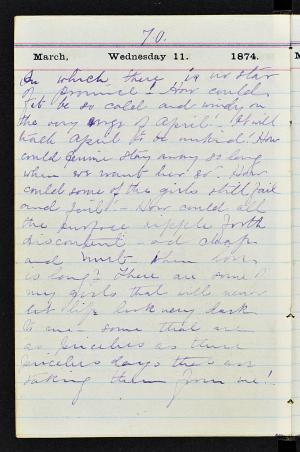 70.
March, Wednesday 11. 1874.
In which there is no star
of promise! How could
it be so cold and windy on
the very wings of April! It will
teach April to be unkind! How
could Jennie stay away so long
when we want her so! How
could some of the girls still fail
and fail! - How could all
the surface ripple forth
discontent - and
and when
so long? There are some of
my girls that will never
let life look very dark
to me - some that are
as priceless as these
priceless days that are
taking them from me!